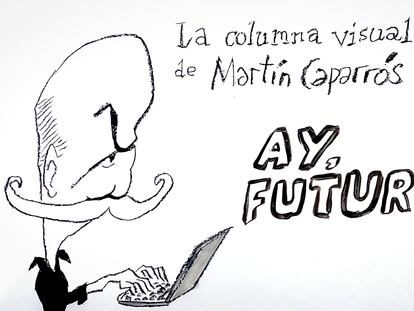 La columna visual
de Martín Caparrós
AY,
FUTUR